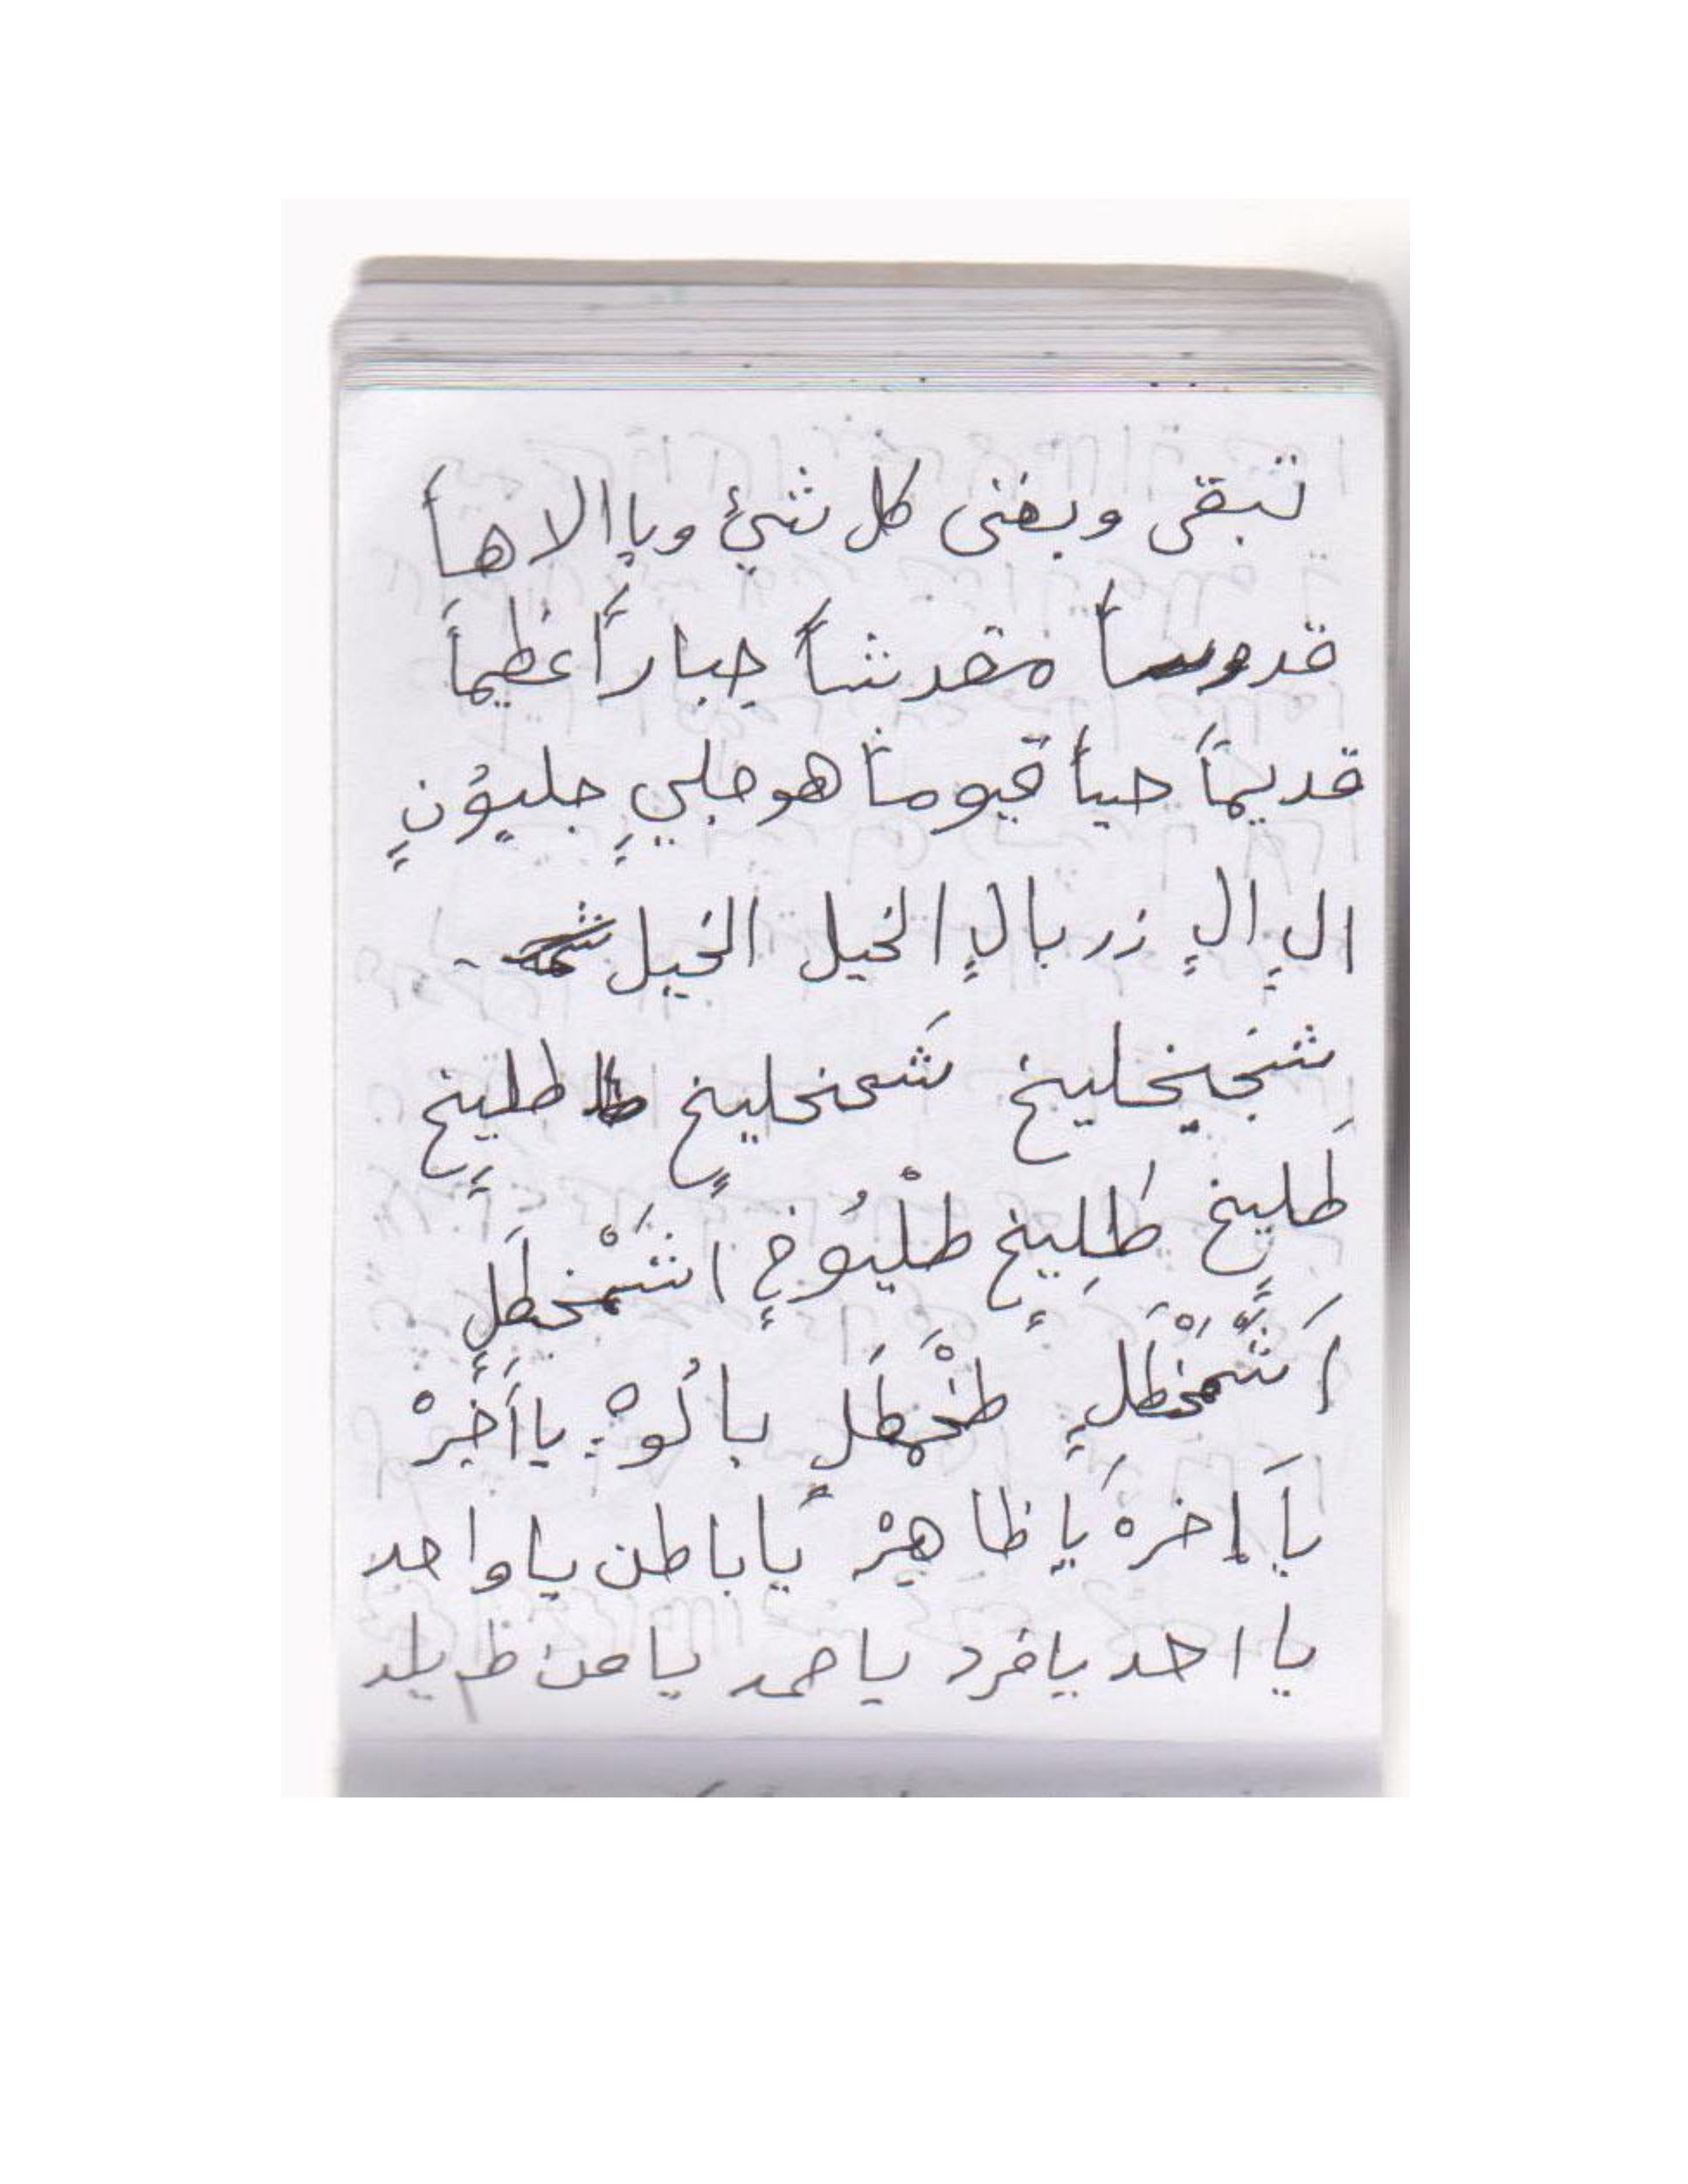 تبقى ويفنى كل شيئٍ ويا الاهاً
قدوساً مقدشاً جباراً عظيماً
قديماً حياً قيوماً هو جليٍ جليوُنٍ
الٍ الٍ زربالٍ الخيل الخيل
شنجيخليخ شَمخليخٍ طليخٍ
طَليخٍ طَلِيخٍ طلْيُوخٍ اشَمْخطَلٍ
اَشَّمْخْطَلٍ طخْمطَلٍ باُلوْهٍ يا اَخِرْ
ياَ إخره ياَ ظاهِرْ ياَ باطن يا واحد
يا احد يا فرد يا صمد يا من لم يلد